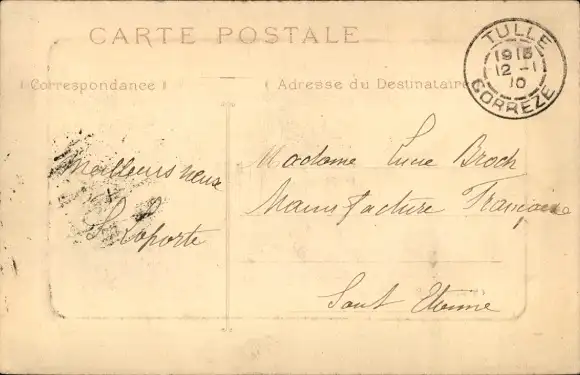 CARTE POSTALE
TULLE
1915
12 - 1
10
CORREZE
Correspondance
Adresse du Destinataire
Meilleurs vœux
Laporte
Madame Lucie Broch
Manufacture Française
Saint Etienne